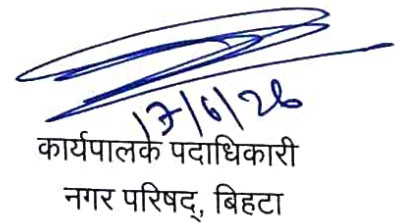 17/6/26
कार्यपालक पदाधिकारी
नगर परिषद्, बिहटा